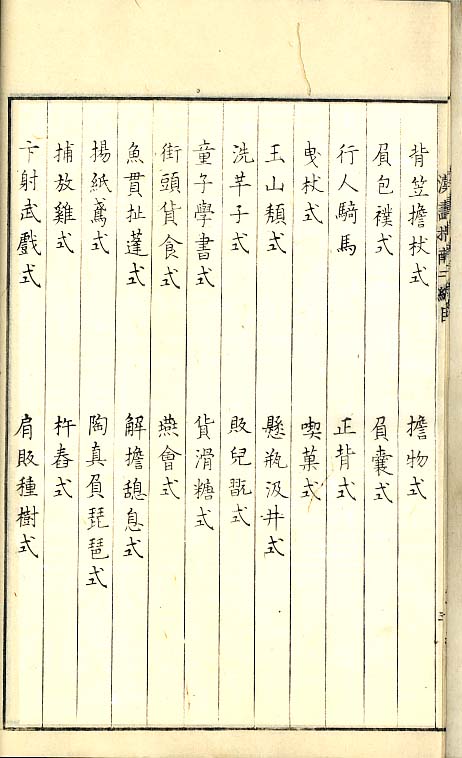 背笠擔杖式 擔物式
負包襆式 負囊式
行人騎馬 正背式
曳杖式 喫菓式
玉山頽式 懸瓶汲井式
洗芋子式 販兒翫式
童子學書式 貨滑糖式
街頭貨食式 燕會式
魚貫扯蓬式 解擔憩息式
揚紙鳶式 陶真負琵琶式
捕放雞式 杵舂式
卞射武戲式 肩販種樹式